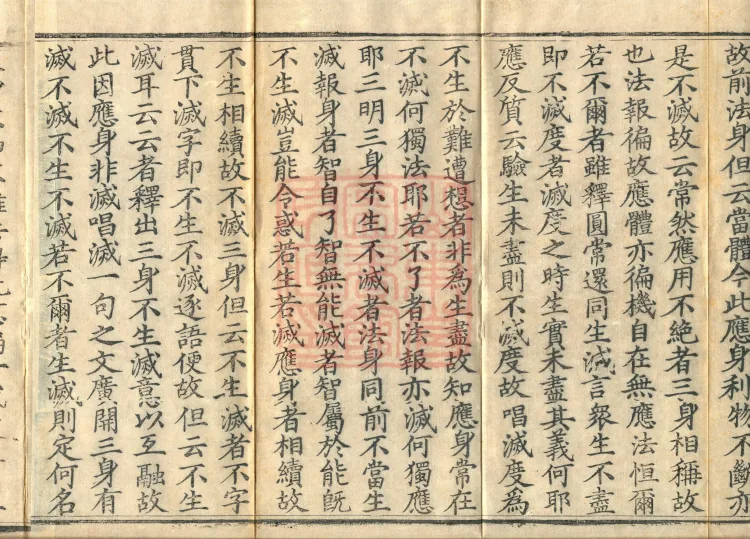 故前法身但云當體今此應身利物不斷亦
是不滅故云常然應用不絕者三身相稱故
也法報徧故應體亦徧機自在無應法恒爾
若不爾者雖釋圓常還同生滅言眾生不盡
即不滅度者滅度之時生實未盡其義何耶
應反質云驗生未盡則不滅度故唱滅度為
不生於難遭想者非為生盡故知應身常在
不滅何獨法耶若不了者法報亦滅何獨應
耶三明三身不生不滅者法身同前不當生
滅報身者智自了智無能滅者智屬於能旣
不生滅豈能令惑若生若滅應身者相續故
不生相續故不滅三身但云不生滅者不字
貫下滅字即不生不滅逐語便故但云不生
滅耳云云者釋出三身不生滅意以互融故
此因應身非滅唱滅一句之文廣開三身有
滅不滅不生不滅若不爾者生滅則定何名